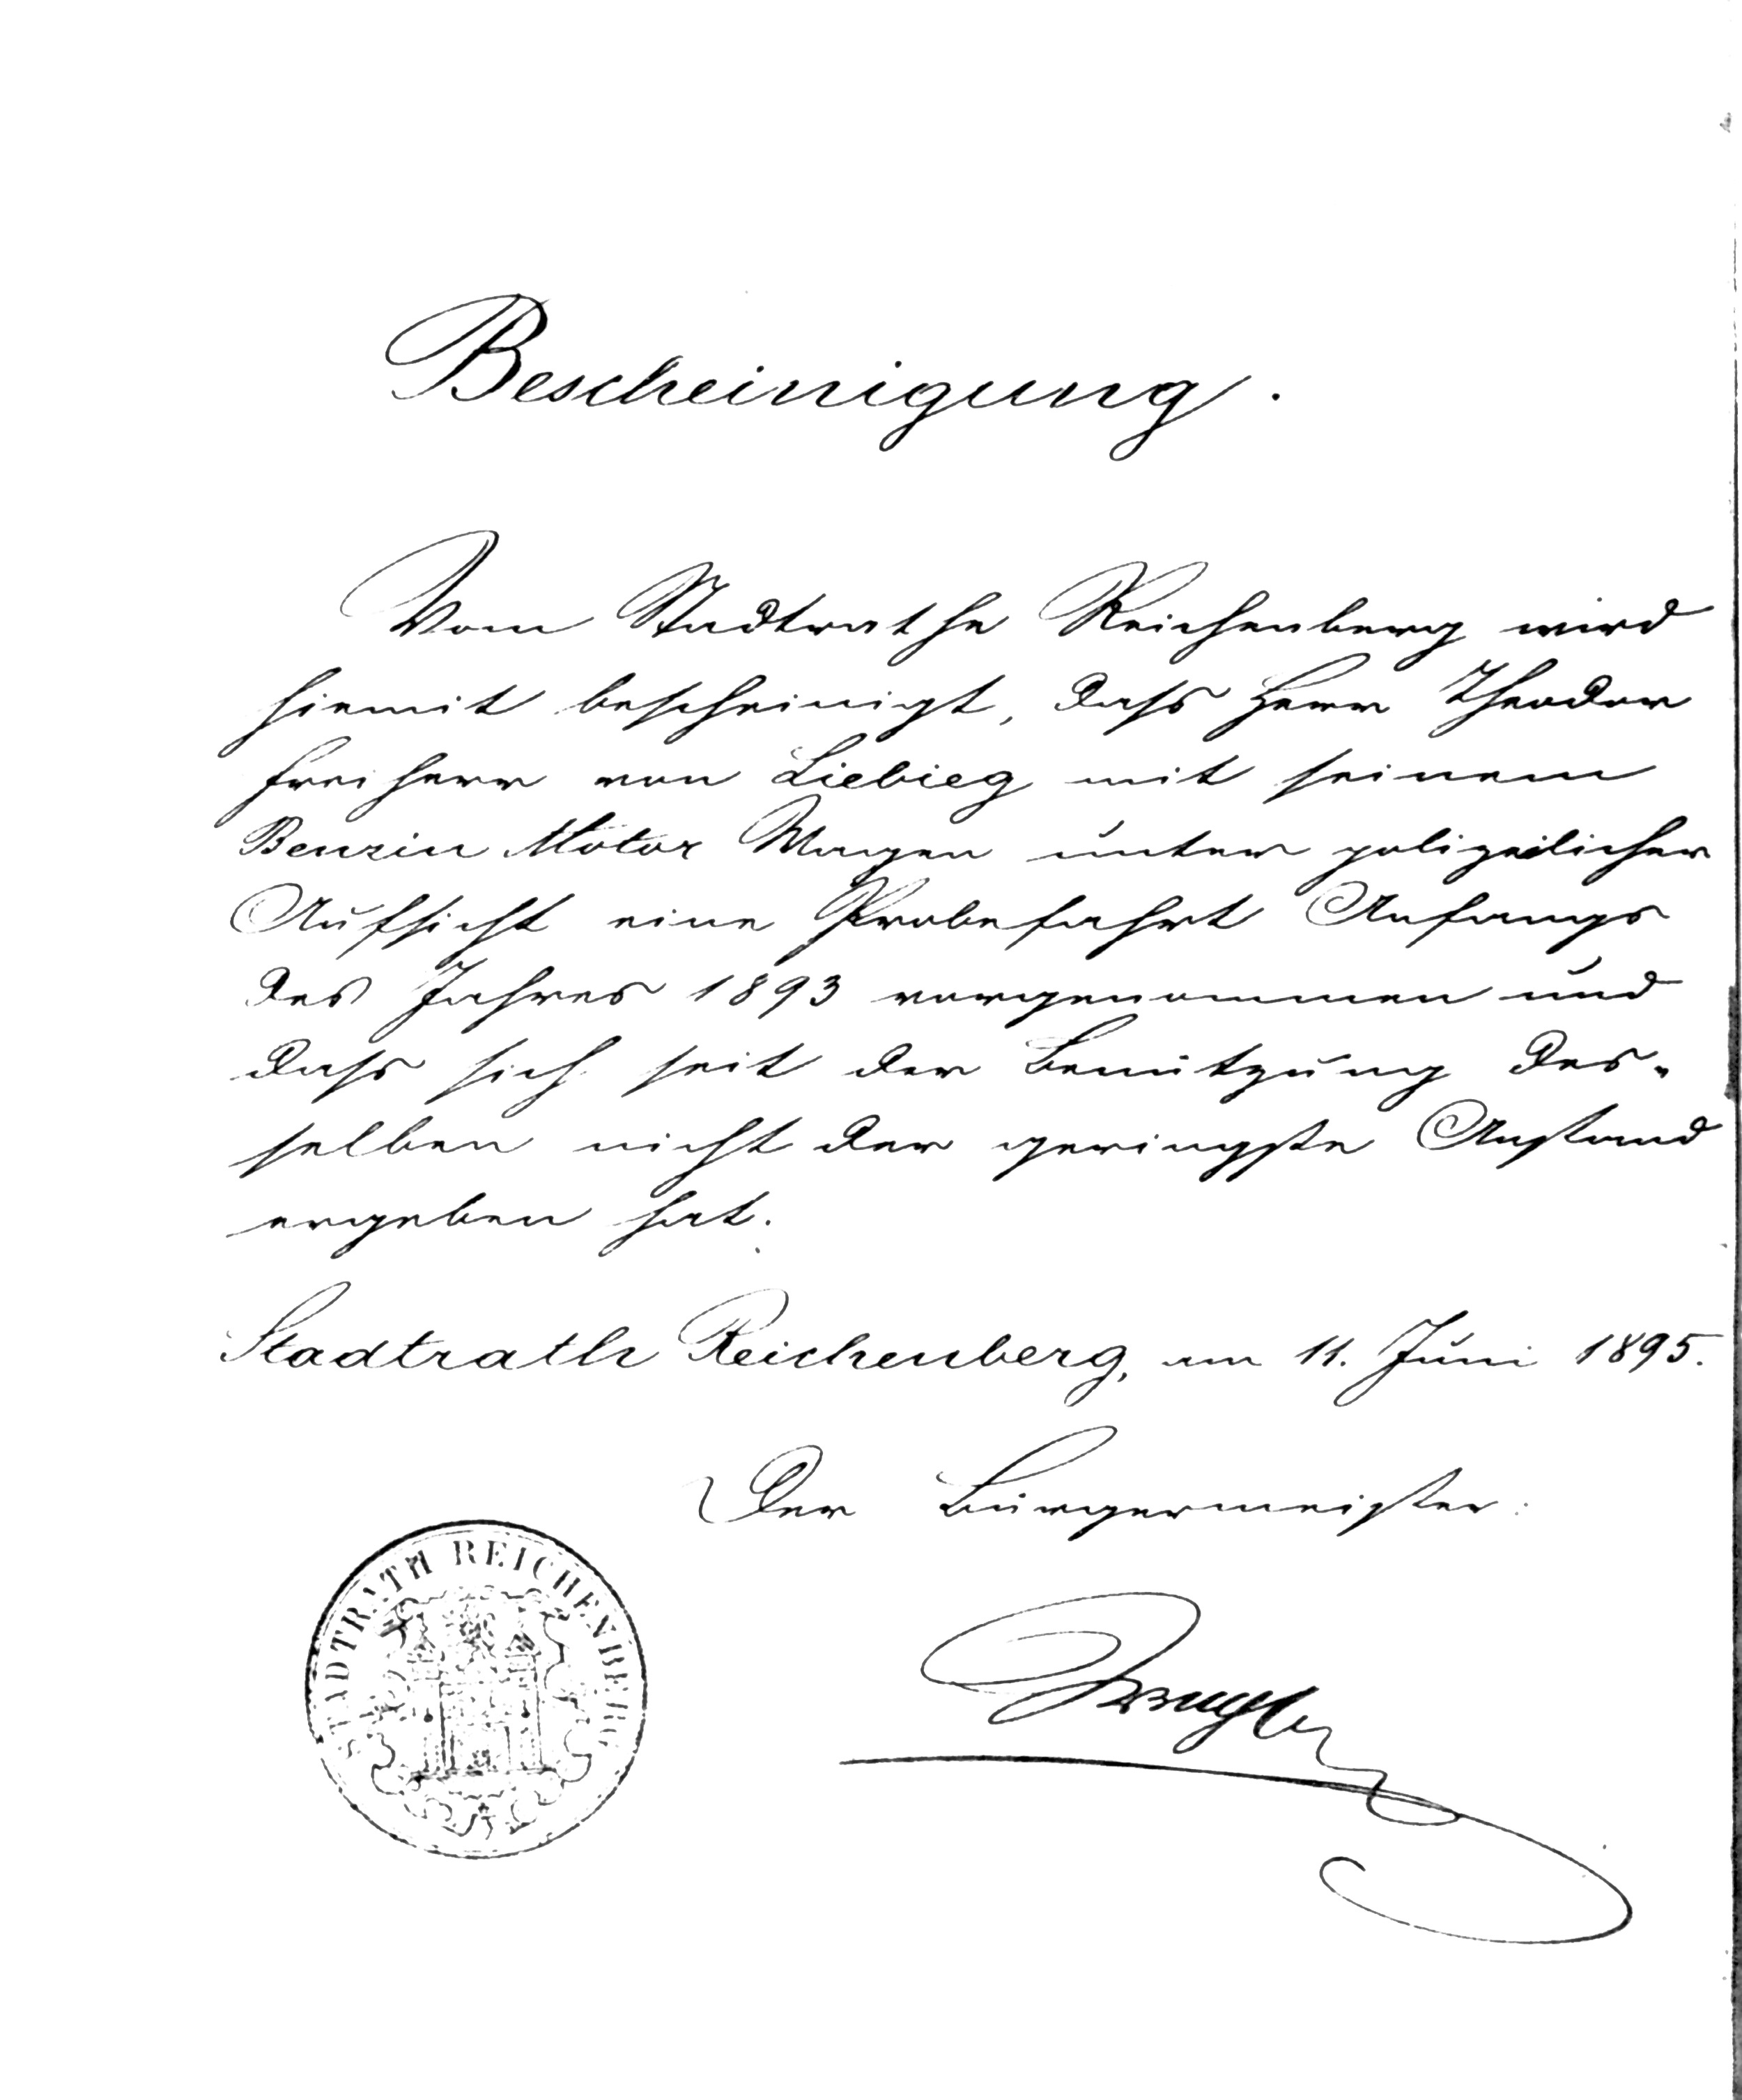 Bescheinigung.
Vom Stadtrathe Reichenberg wird
hiemit bescheinigt, dass Herr Theodor
Freiherr von Liebieg mit seinem
Benzin Motor Wagen unter polizeilicher
Aufsicht eine Probefahrt Anfangs
des Jahres 1893 vorgenommen und
dass sich seit der Benützung des-
selben nicht der geringste Anstand
ergeben hat.
Stadtrath Reichenberg, am 11. Juni 1895.
Der Bürgermeister:
STADTRATH REICHENBERG